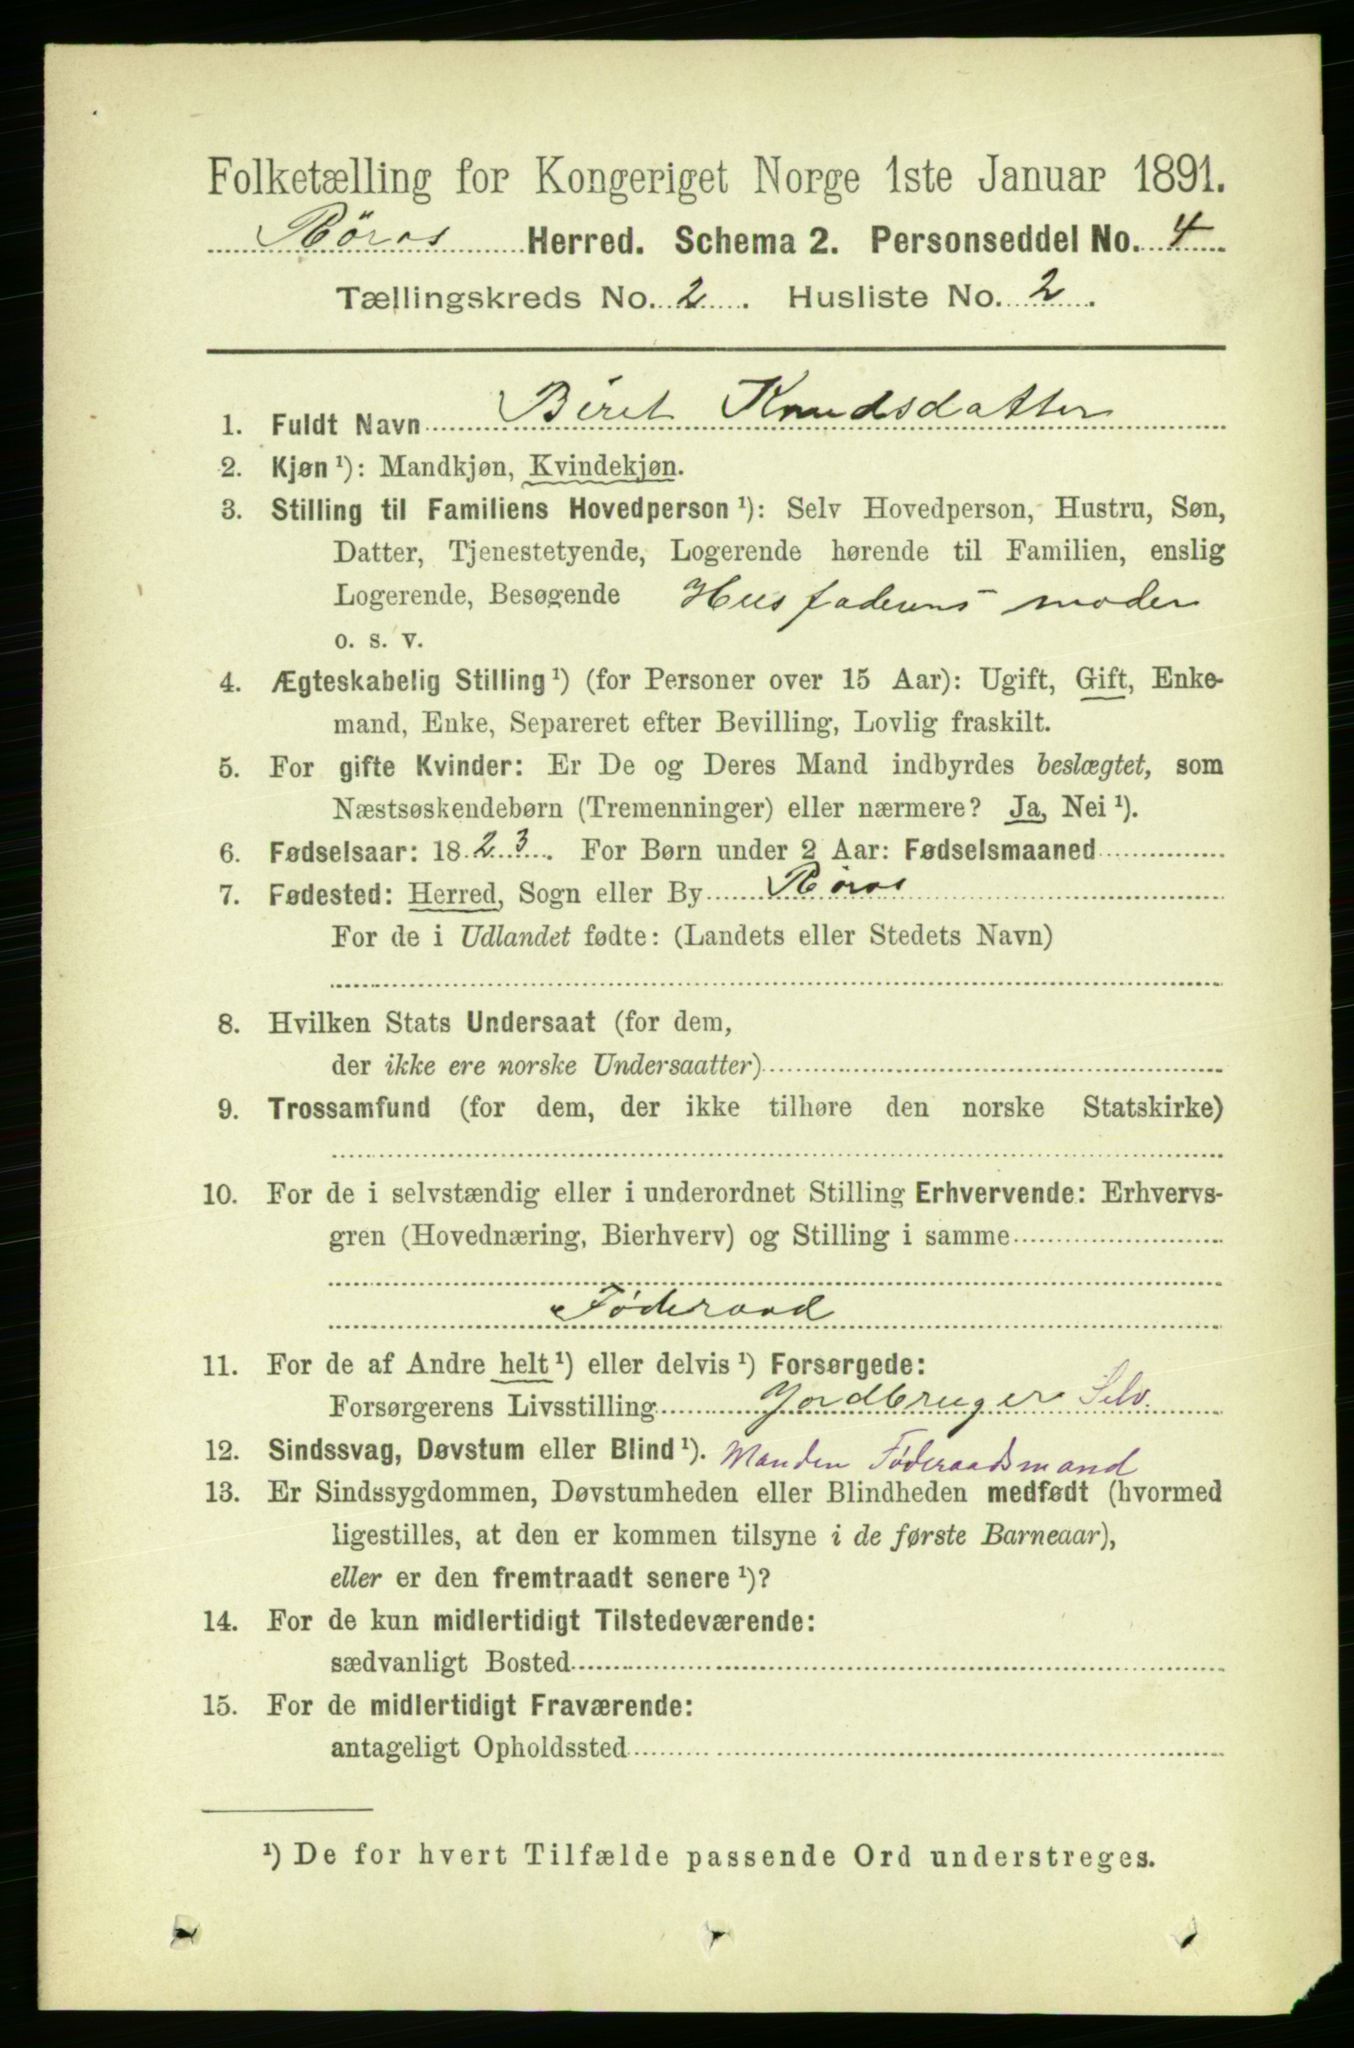 Folketælling for Kongeriget Norge 1ste Januar 1891.
Röros Herred. Schema 2. Personseddel No. 4
Tællingskreds No. 2. Husliste No. 2.
1. Fuldt Navn Beret Knudsdatter
2. Kjøn ¹): Mandkjøn, Kvindekjøn.
3. Stilling til Familiens Hovedperson ¹): Selv Hovedperson, Hustru, Søn,
Datter, Tjenestetyende, Logerende hørende til Familien, enslig
Logerende, Besøgende Husfaderens moder
o. s. v.
4. Ægteskabelig Stilling ¹) (for Personer over 15 Aar): Ugift, Gift, Enke-
mand, Enke, Separeret efter Bevilling, Lovlig fraskilt.
5. For gifte Kvinder: Er De og Deres Mand indbyrdes beslægtet, som
Næstsøskendebørn (Tremenninger) eller nærmere? Ja, Nei ¹).
6. Fødselsaar: 1823. For Børn under 2 Aar: Fødselsmaaned
7. Fødested: Herred, Sogn eller By Röros
For de i Udlandet fødte: (Landets eller Stedets Navn)
8. Hvilken Stats Undersaat (for dem,
der ikke ere norske Undersaatter)
9. Trossamfund (for dem, der ikke tilhøre den norske Statskirke)
10. For de i selvstændig eller i underordnet Stilling Erhvervende: Erhvervs-
gren (Hovednæring, Bierhverv) og Stilling i samme
Føderaad
11. For de af Andre helt ¹) eller delvis ¹) Forsørgede:
Forsørgerens Livsstilling Jordbruger Selv.
12. Sindssvag, Døvstum eller Blind ¹). Manden Føderaadsmand
13. Er Sindssygdommen, Døvstumheden eller Blindheden medfødt (hvormed
ligestilles, at den er kommen tilsyne i de første Barneaar),
eller er den fremtraadt senere ¹)?
14. For de kun midlertidigt Tilstedeværende:
sædvanligt Bosted
15. For de midlertidigt Fraværende:
antageligt Opholdssted
¹) De for hvert Tilfælde passende Ord understreges.